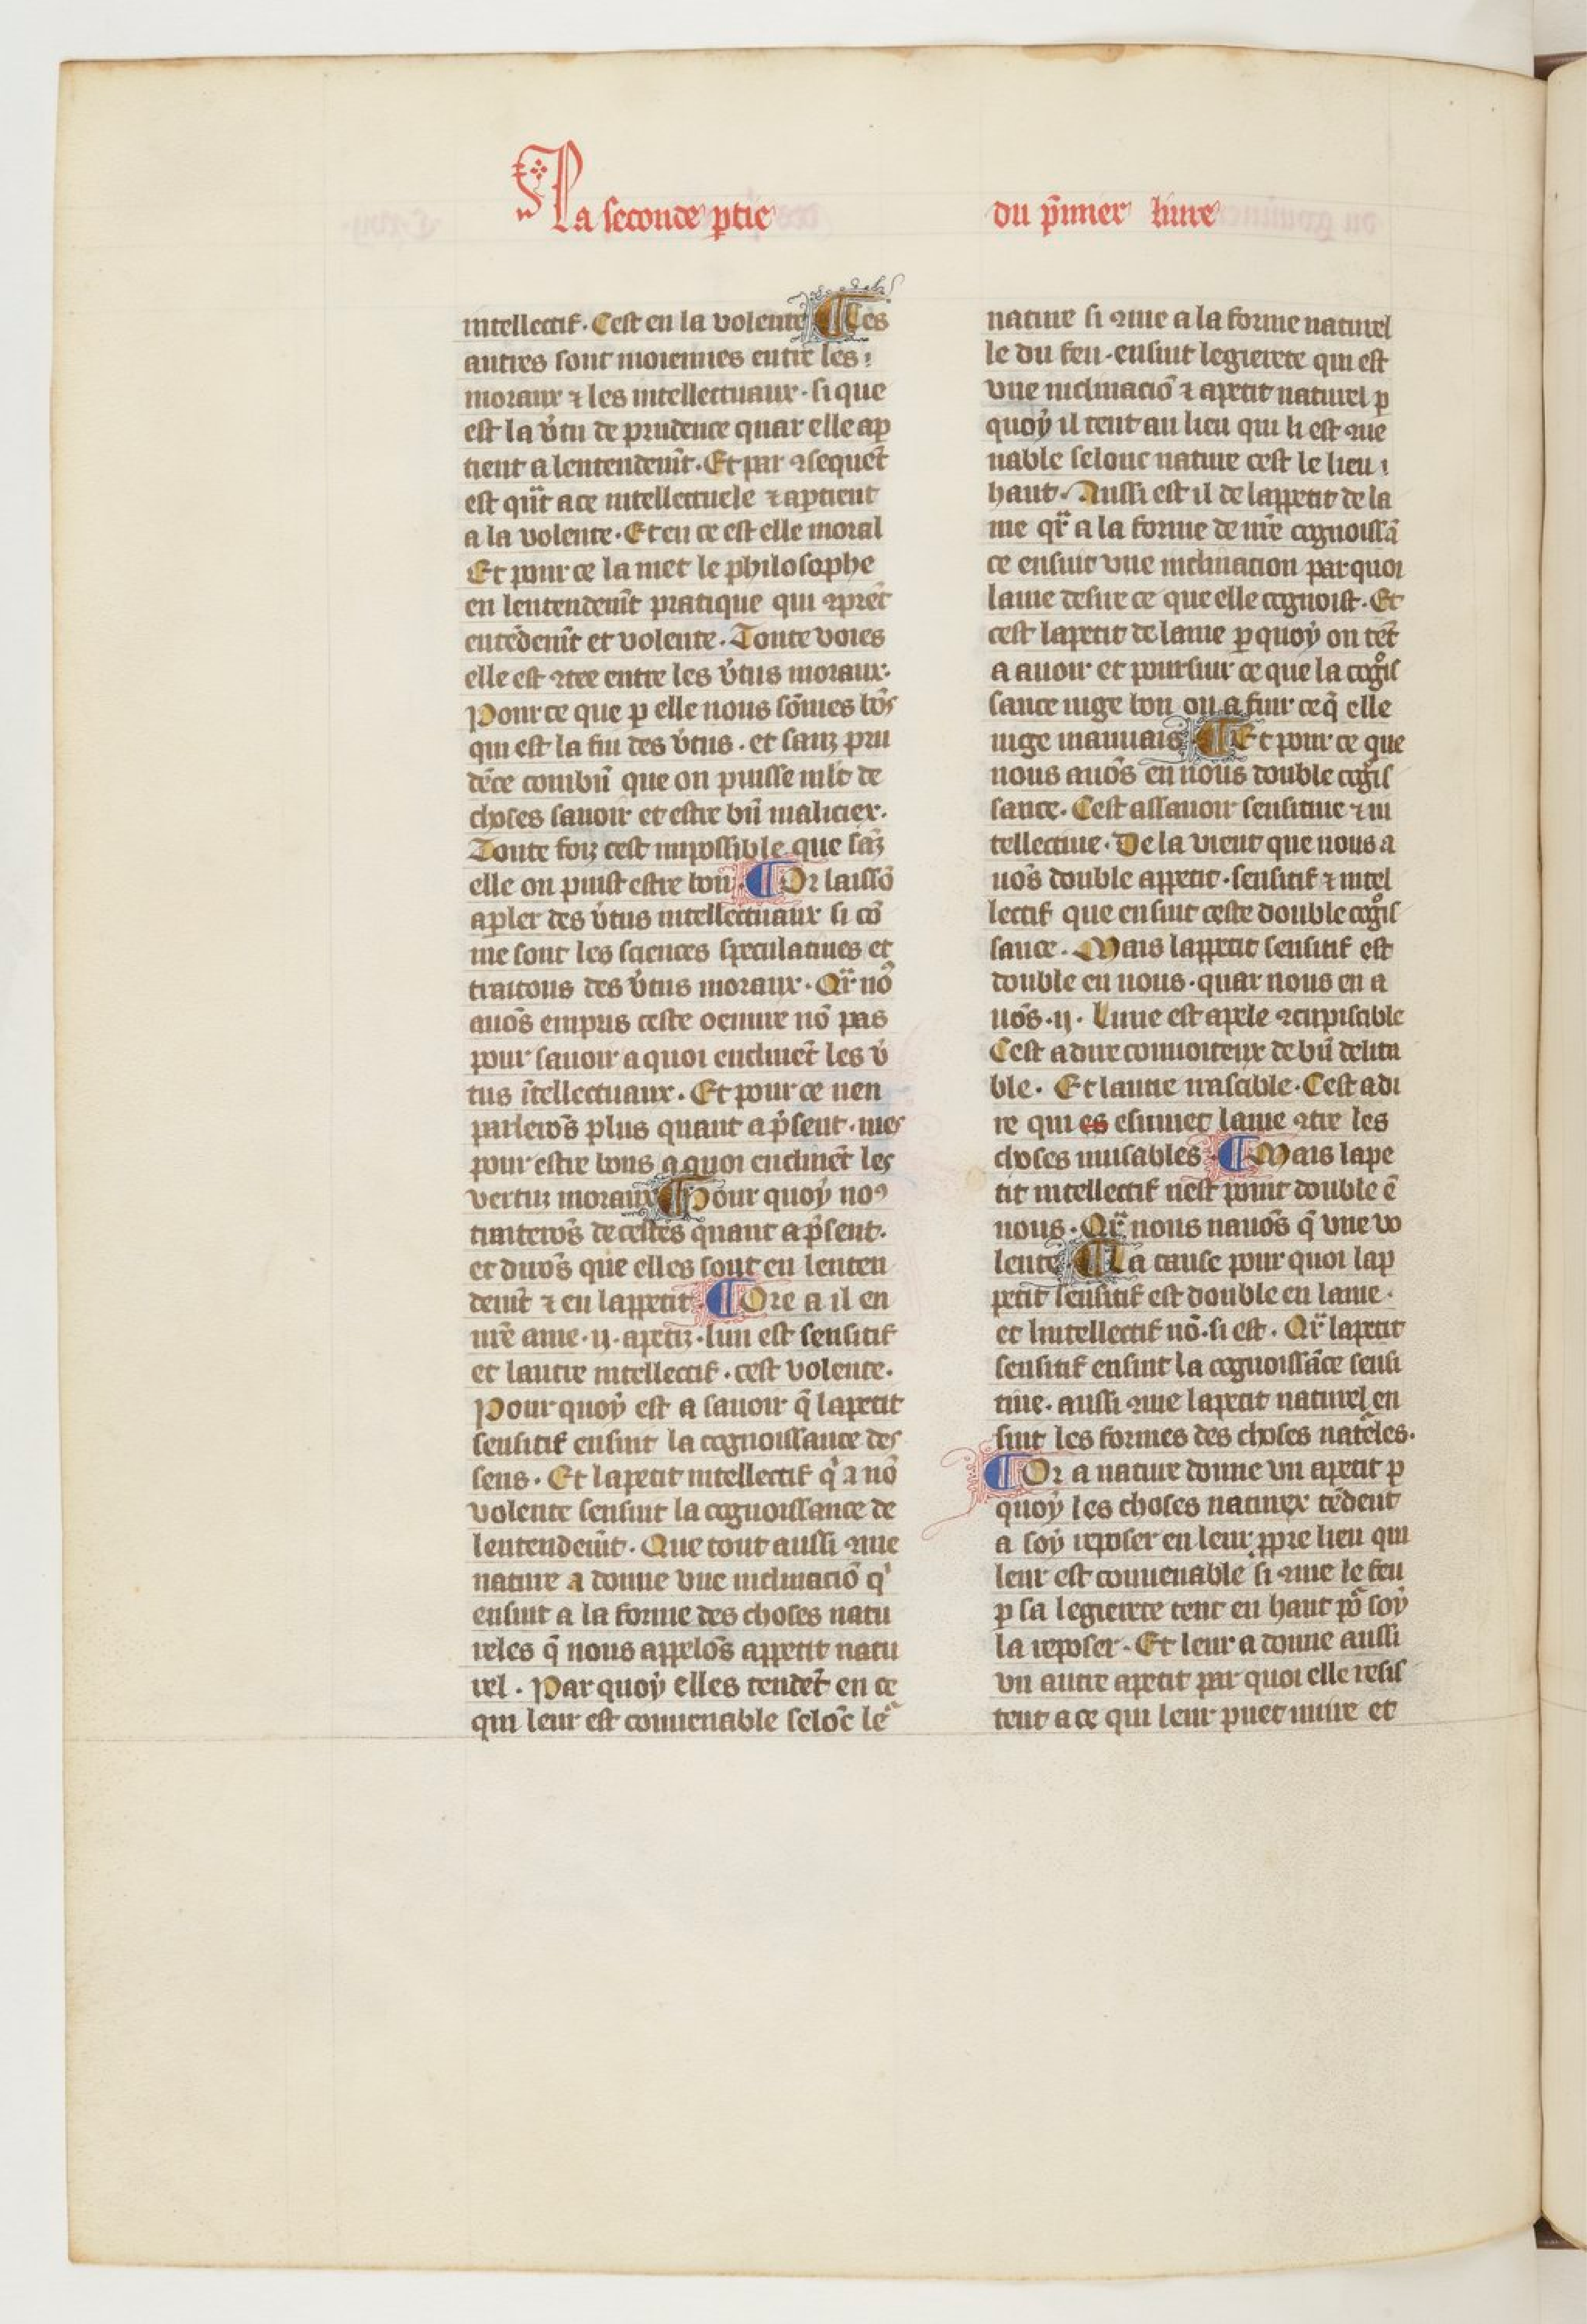 La seconde ꝑtie
du p̄mier liure
intellectif. Cest en la volente ¶ Les
autres sont moiennes entre les
moraux ⁊ les intellectuaux. si que
est la v̾tu de prudence quar elle ap
tient a lentendem̄t. Et par ꝯsequēt
est qͥt a ce intellectuele ⁊ aptient
a la volente. Et en ce est elle moral
Et pour ce la met le philosophe
en lentendem̄t pratique qui ꝯprēt
entēdem̄t et volente. Toute voies
elle est ꝯtee entre les v̾tus moraux.
Pour ce que ꝑ elle nous sōmes bōs
qui est la fin des v̾tus. et sanz pru
dēce combn̄ que on puisse mlt̄ de
choses sauoir et estre bn̄ malicier.
Toute foiz cest impossible que sāz
elle on puist estre bon. ¶ Or laissō
apler des v̾tus intellectuaux si cō
me sont les sciences speculatiues et
traitons des v̾tus moraux. Qr̄ noꝰ
auōs empris ceste oeuure nō pas
pour sauoir a quoi enclinēt les v̾
tus ītellectuaux. Et pour ce nen
parlerōs plus quant a p̄sent. mes
pour estre bons a quoi enclinēt les
vertuz moraux ¶ Pour quoy noꝰ
traiterōs de cestes quant a p̄sent.
et dirōs que elles sont en lenten
dem̄t ⁊ en lappetit. ¶ Ore a il en
nr̄e ame .ij. apetiz. lun est sensitif
et lautre intellectif. cest volente.
Pour quoy est a sauoir q̄ lapetit
sensitif ensiut la cognoissance des
sens. Et lapetit intellectif qͥ a nō
volente sensiut la cognoissance de
lentendem̄t. Que tout aussi ꝯme
nature a donne vne inclinaciō qͥ
ensiut a la forme des choses natu
reles q̄ nous appelōs appetit natu
rel. Par quoy elles tendēt en ce
qui leur est conuenable selōc leͬ
nature si ꝯme a la forme naturel
le du feu. ensiut legierete qui est
vne inclinaciō ⁊ apetit naturel ꝑ
quoy il tent au lieu qui li est ꝯue
nable selonc nature cest le lieu
haut. Aussi est il de lappetit de la
me qr̄ a la forme de nr̄e cognoissā
ce ensuit vne inclination par quoi
lame desire ce que elle cognoist. Et
cest lapetit de lame ꝑ quoy on tēt
a auoir et poursuir ce que la cogͦis
sance iuge bon ou a fuir ce q̄ elle
iuge mauuais ¶ Et pour ce que
nous auōs en nous double cogͦis
sance. Cest assauoir sensitiue ⁊ in
tellectiue. De la vient que nous a
uōs double appetit. sensitif ⁊ intel
lectif que ensiut ceste double cogͦis
sance. Mais lappetit sensitif est
double en nous. quar nous en a
uōs .ij. Lune est apele ꝯcupiscible
Cest a dire conuoiteux de bn̄ delita
ble. Et lautre irascible. Cest a di
re qui es esimet lame ꝯtre les
choses nuisables. ¶ Mais lape
tit intellectif nest point double ē
nous. Qr̄ nous nauōs q̄ vne vo
lente ¶ La cause pour quoi lap
petit sensitif est double en lame.
et lintellectif nō. si est. Qr̄ lapetit
sensitif ensiut la cognoissāce sensi
tiue. aussi ꝯme lapetit naturel en
siut les formes des choses natēles.
¶ Or a nature donne vn apetit ꝑ
quoy les choses naturex tēdent
a soy reposer en leur ꝓpre lieu qui
leur est conuenable si ꝯme le feu
ꝑ sa legierete tent en haut pͦͬ soy
la reposer. Et leur a donne aussi
vn autre apetit par quoi elle resis
tent a ce qui leur puet nuire et